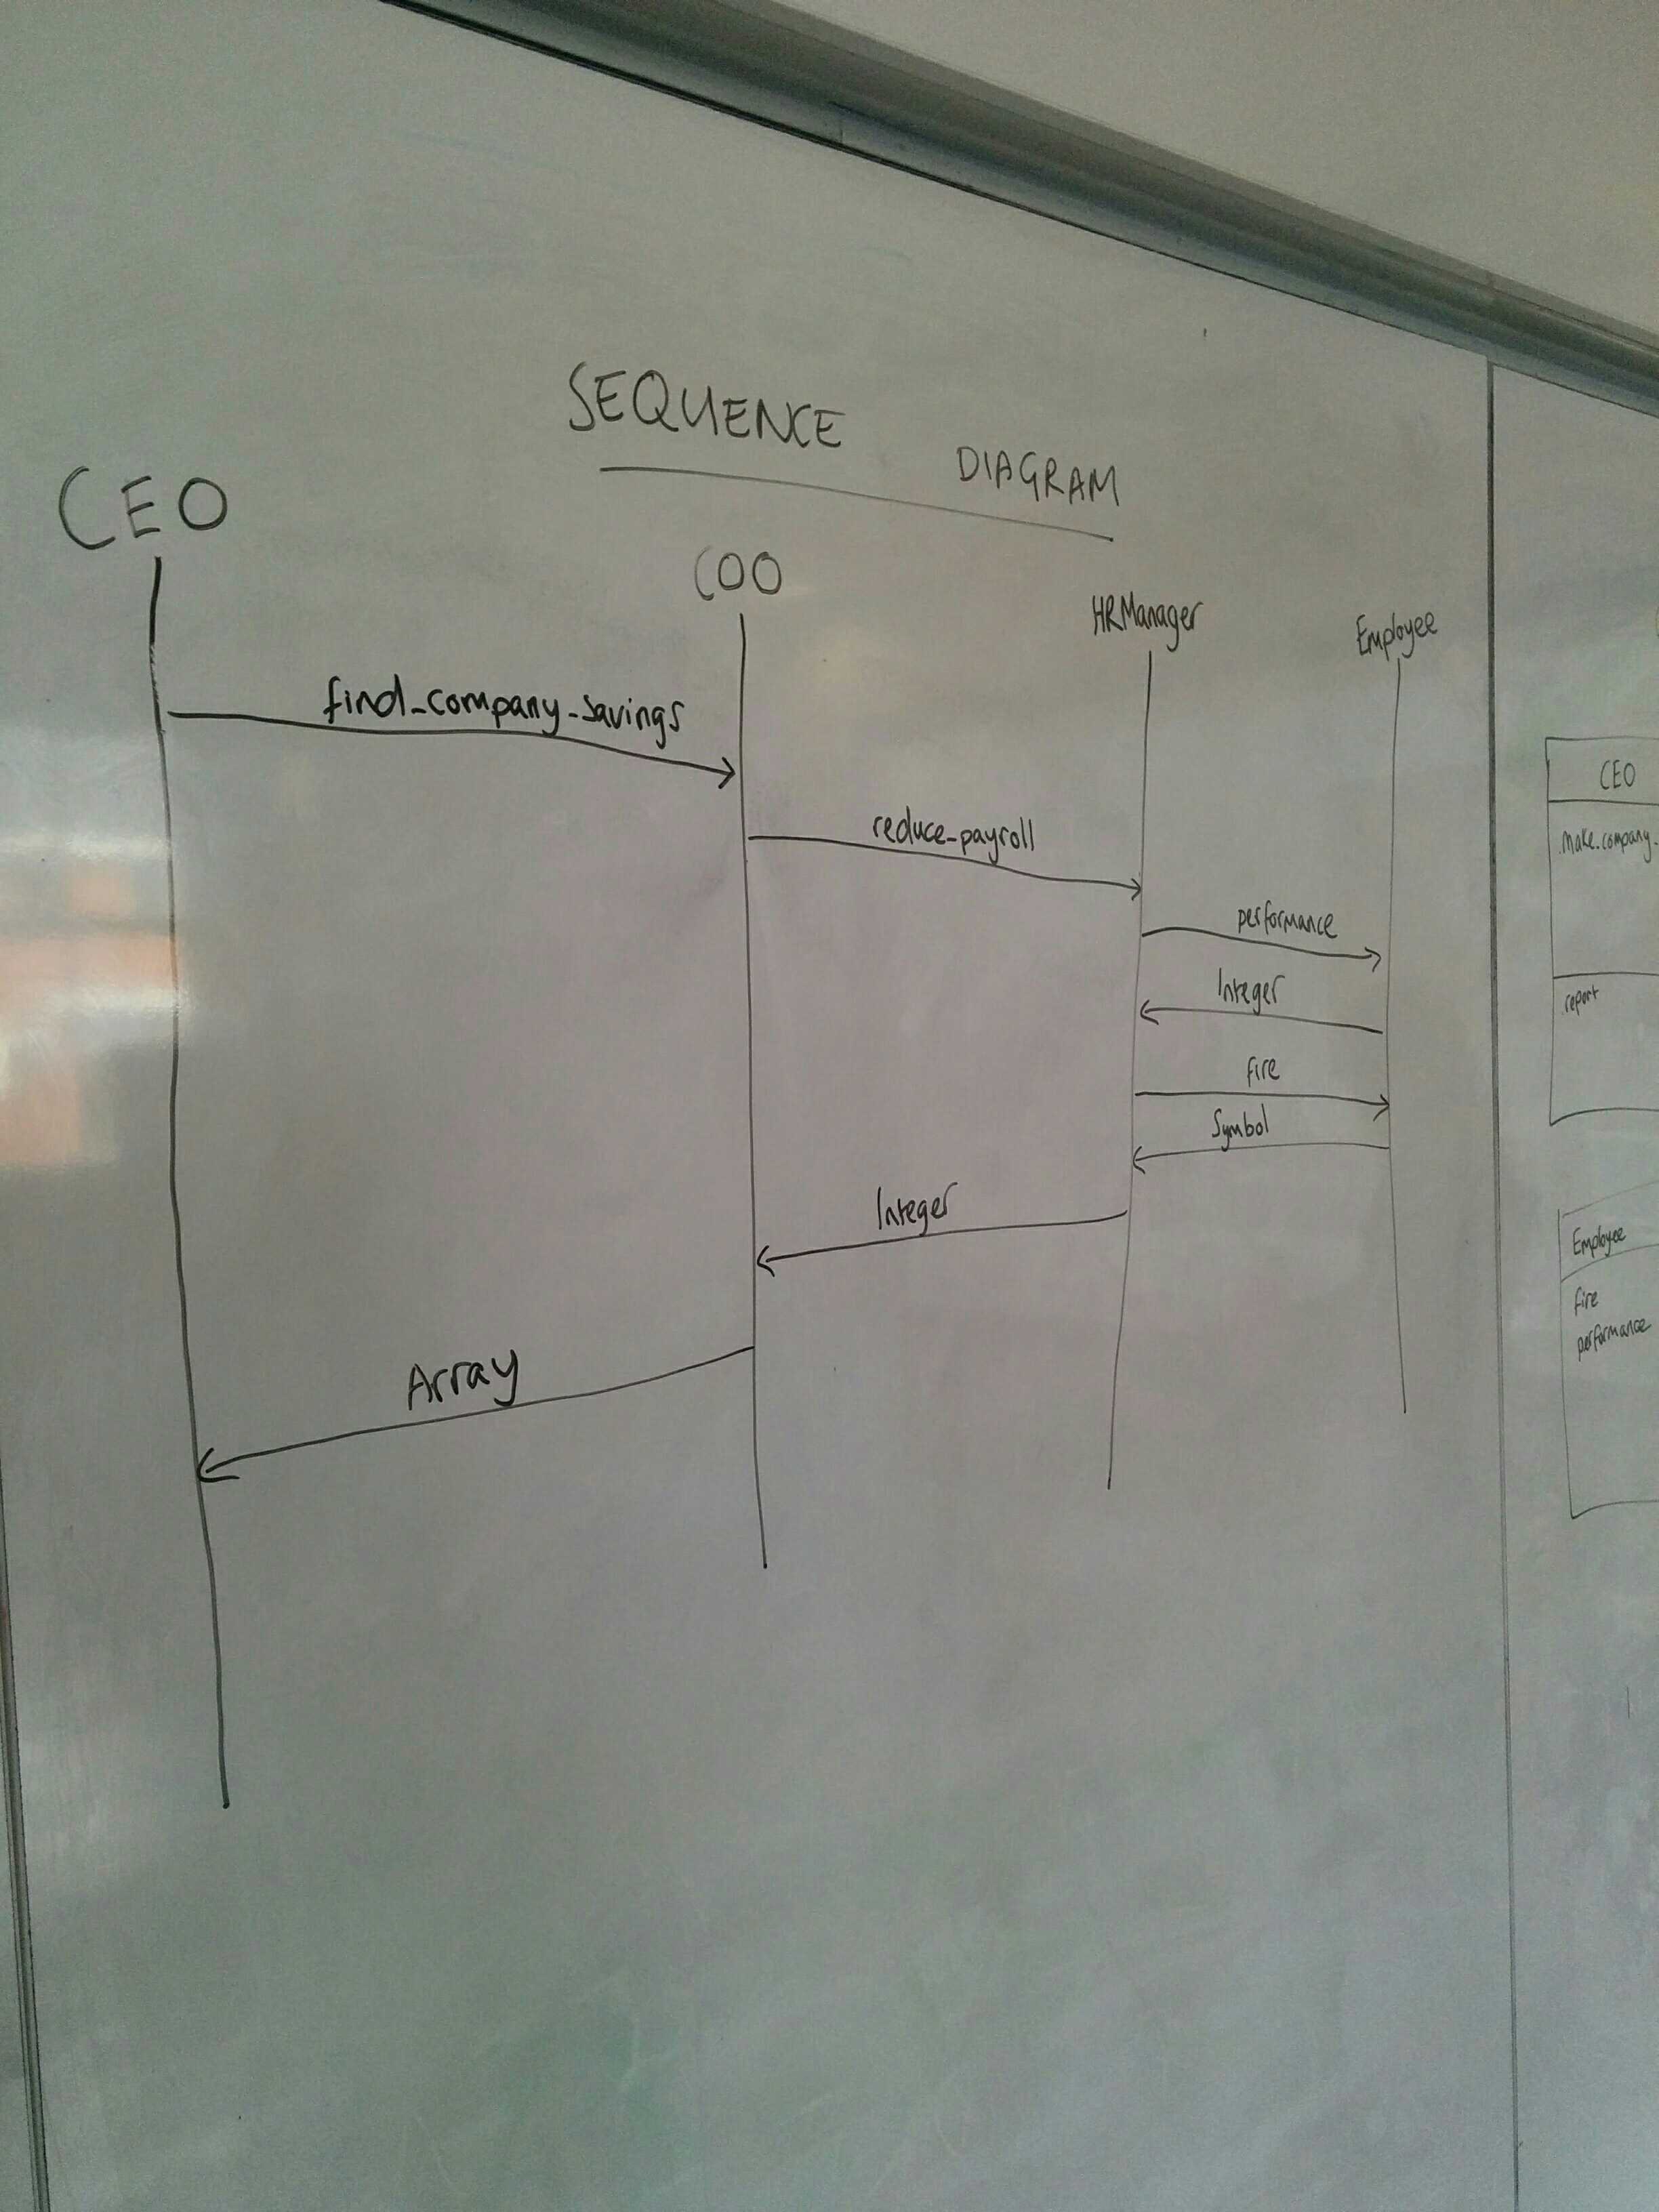 SEQUENCE DIAGRAM
CEO
COO
HRManager
Employee
find_company_savings
reduce_payroll
performance
Integer
fire
Symbol
Integer
Array
CEO
.make.company_
.report
Employee
fire
performance